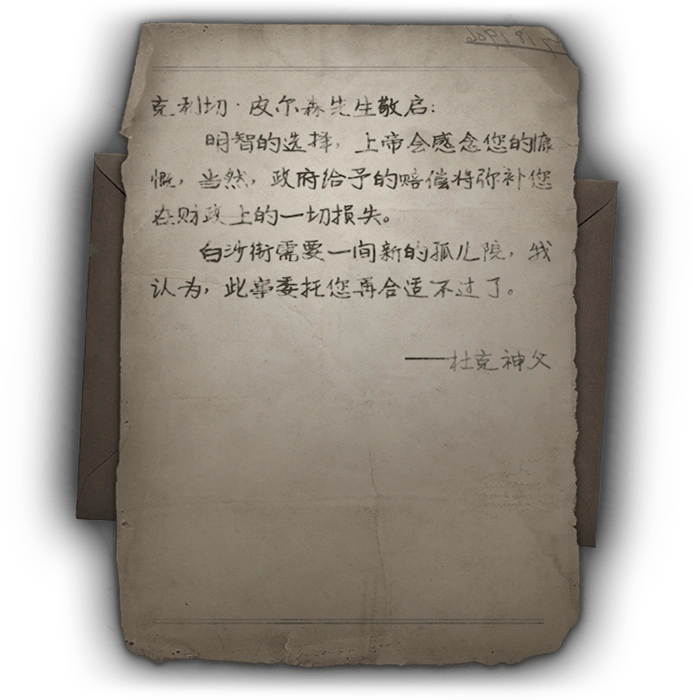 克利切·皮尔森先生敬启：
明智的选择，上帝会感念您的慷
慨，当然，政府给予的赔偿将弥补您
在财政上的一切损失。
白沙街需要一间新的孤儿院，我
认为，此事委托您再合适不过了。
——杜克神父